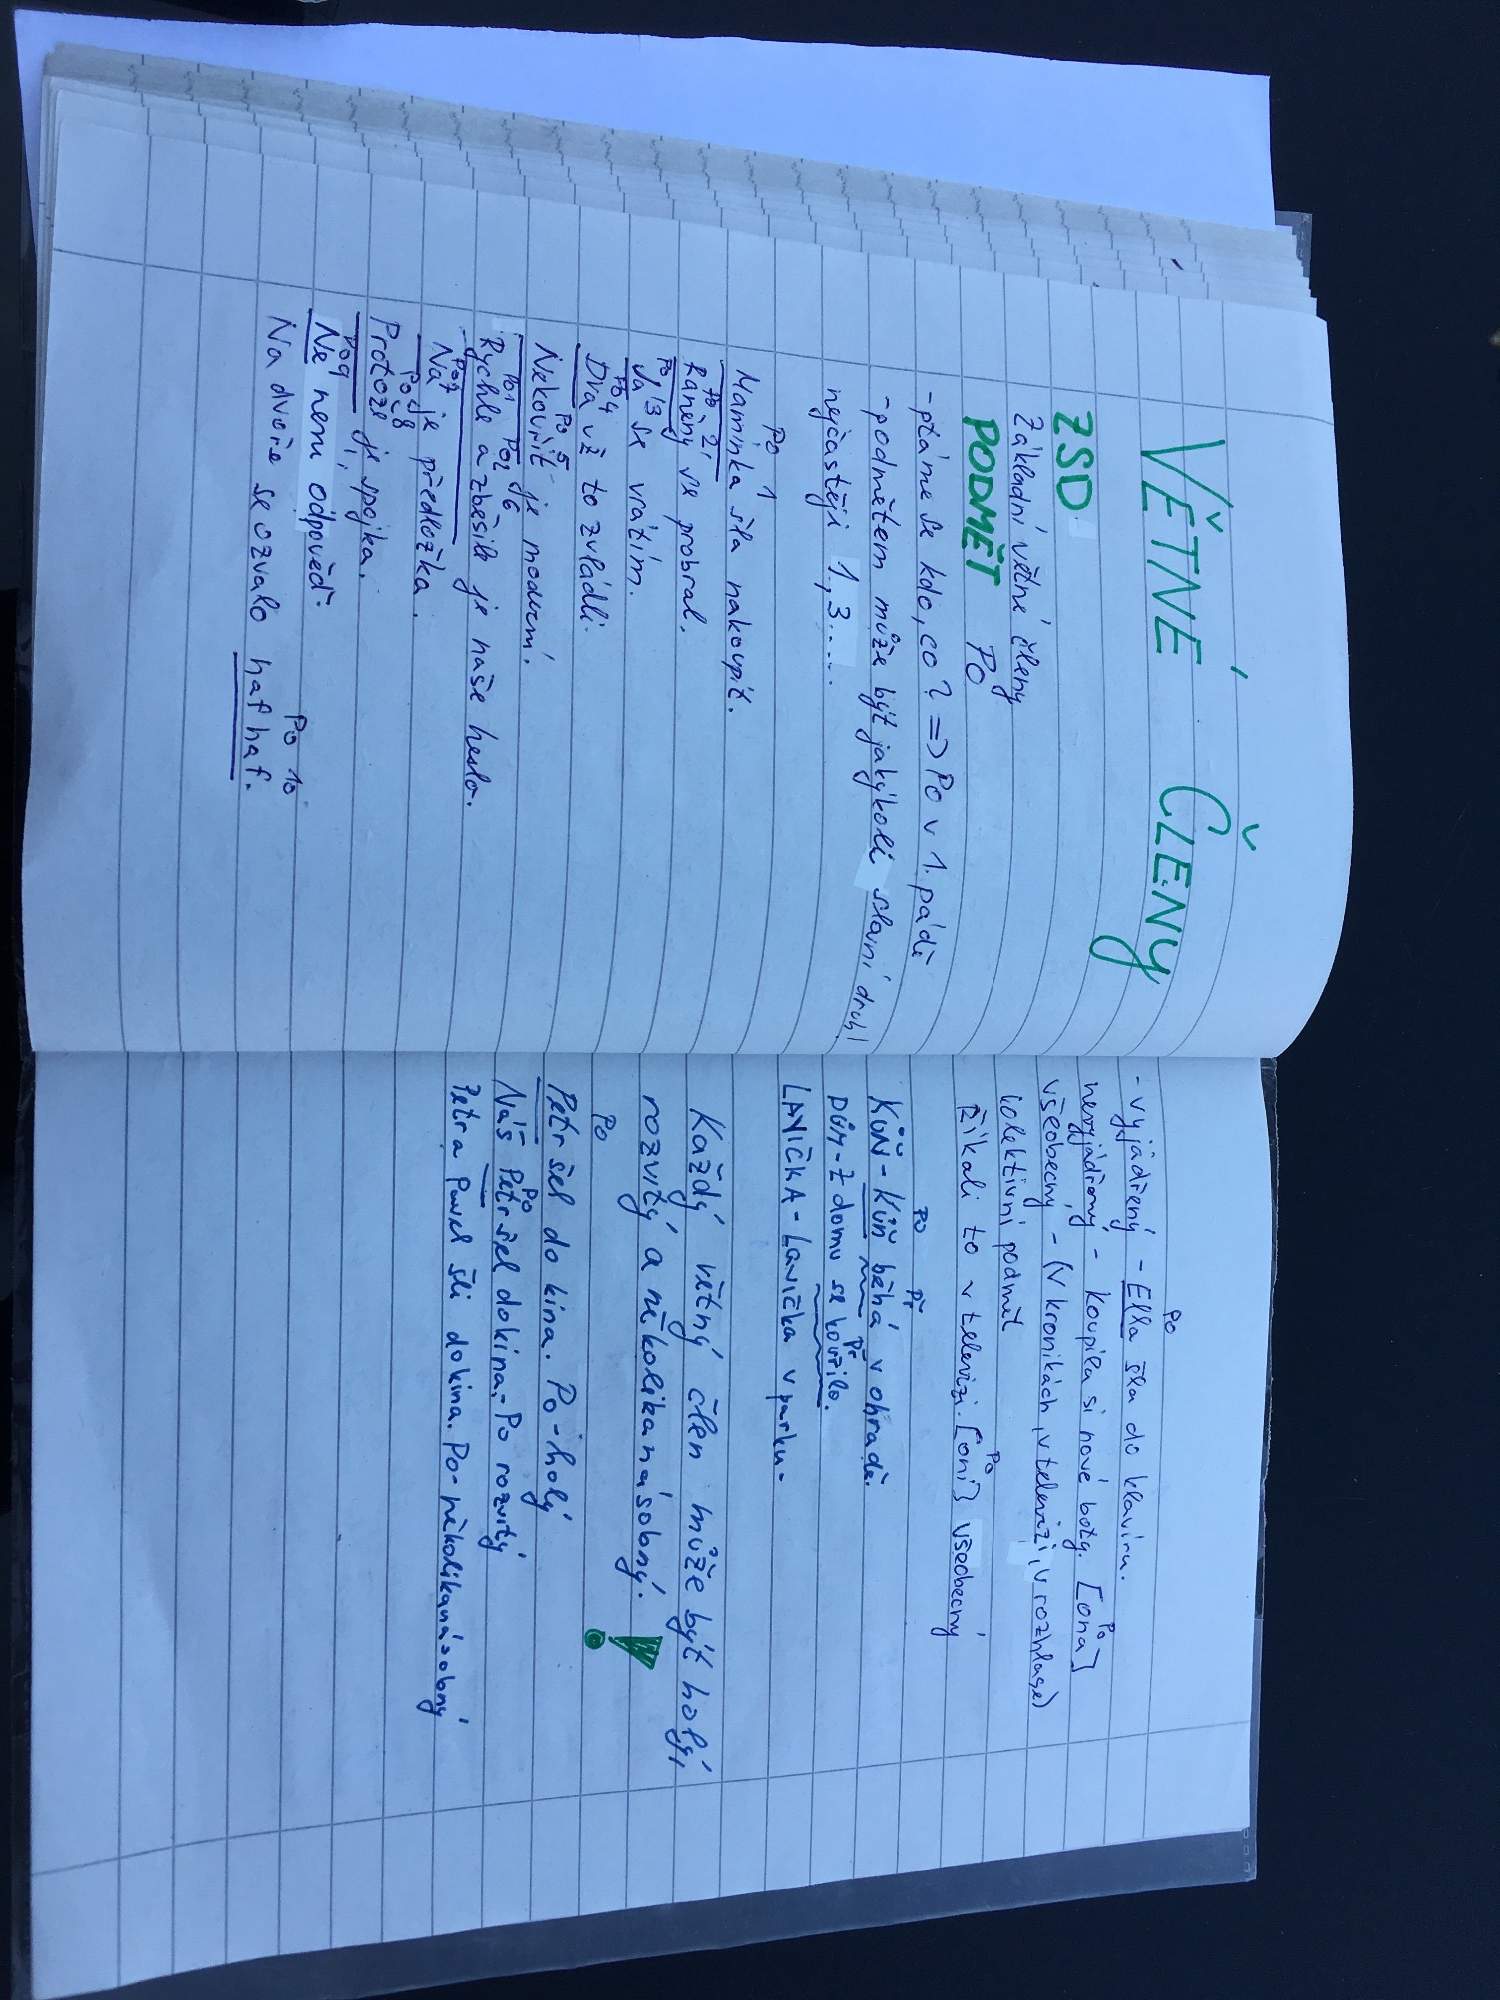 VĚTNÉ ČLENY
ZSD
Základní větné členy
PODMĚT Po
- ptáme se kdo, co? => Po v 1. pádě
- podmětem může být jakýkoli slovní druh
nejčastěji 1, 3....
Po 1
Maminka šla nakoupit.
Po 2
Raněný se probral.
Po 3
Já se vrátím.
Po 4
Dva už to zvládli.
Po 5
Nekouřit je moderní.
Po1 Po2 6
Rychle a zběsile je naše heslo.
Po 7
Na je předložka.
Po 8
Protože je spojka.
Po 9
Ne není odpověď.
Po 10
Na dvoře se ozvalo haf haf.
Po
- vyjádřený - Ella šla do klavíru.
Po
nevyjádřený - koupila si nové boty. [ona]
všeobecný - (v kronikách, v televizi, v rozhlase)
kolektivní podmět
Po
Říkali to v televizi. [oni] všeobecný
Po Př
KŮŇ - Kůň běhá v ohradě.
Př
DŮM - Z domu se kouřilo.
LAVIČKA - Lavička v parku.
Každý větný člen může být holý,
rozvitý a několikanásobný. !
Po
Petr šel do kina. Po - holý
Po
Náš Petr šel do kina. - Po rozvitý
Petr a Pavel šli do kina. Po - několikanásobný